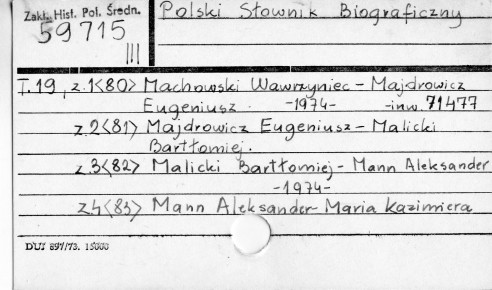 Zakł. Hist. Pol. Średn.
59715
III
Polski Słownik Biograficzny
T.19, z.1<80> Machowski Wawrzyniec - Majdrowicz
Eugeniusz. -1974- -inw. 71477
z.2<81> Majdrowicz Eugeniusz - Malicki
Bartłomiej.
z.3<82> Malicki Bartłomiej - Mann Aleksander
-1974-
z.4<83> Mann Aleksander - Maria Kazimiera
DUJ 897/73. 15000